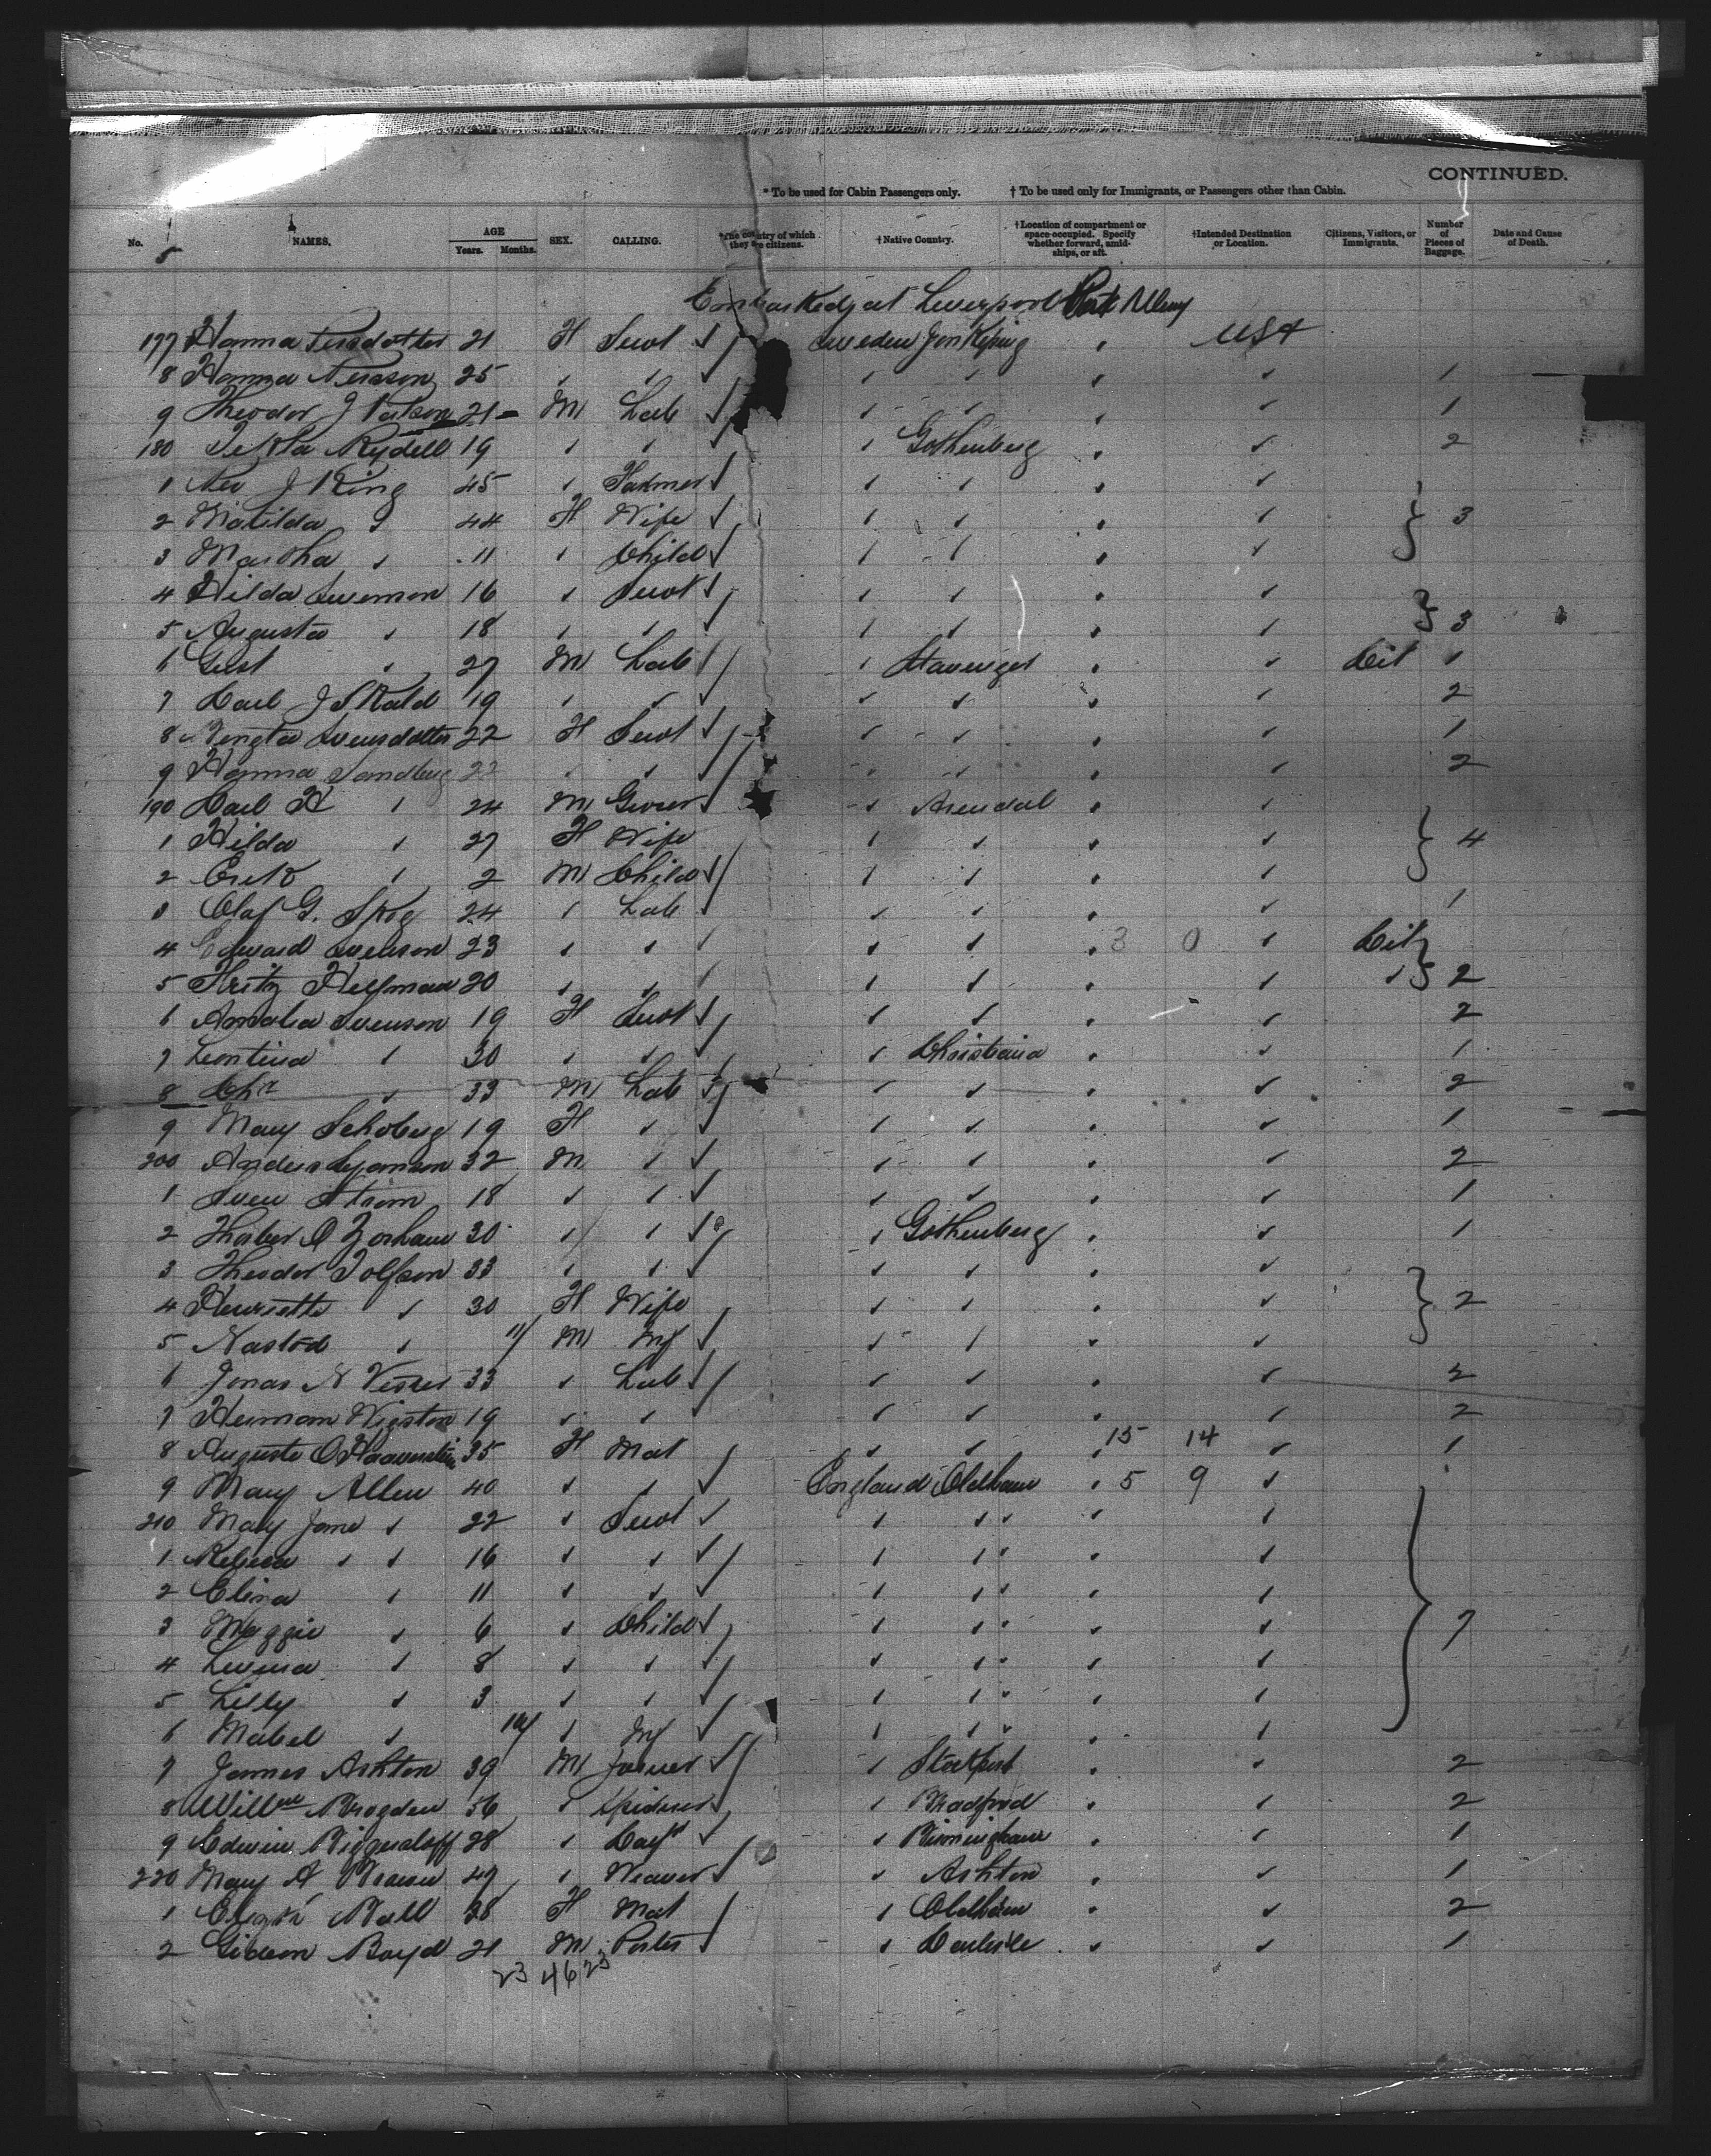 CONTINUED.
* To be used for Cabin Passengers only. † To be used only for Immigrants, or Passengers other than Cabin.
No. NAMES. AGE Years. Months. SEX. CALLING. *The country of which they are citizens. †Native Country. †Location of compartment or space occupied. Specify whether forward, amidships, or aft. †Intended Destination or Location. Citizens, Visitors, or Immigrants. Number of Pieces of Baggage. Date and Cause of Death.
5
Embarked at Liverpool
177 Hanna 21 H Sevt Sweden USA
8 Hanna 25 ✓ ✓ ✓ ✓ ✓ 1
9 Theodor J 21 M Lab ✓ ✓ ✓ 1
180 Rydell 19 ✓ ✓ ✓ Gothenberg ✓ 2
1 J King 45 ✓ Farmer ✓ ✓ ✓
2 Matilda ✓ 44 H Wife ✓ ✓ ✓ 3
3 Martha ✓ 11 ✓ Child ✓ ✓ ✓
4 Hilda Swenson 16 ✓ Sevt ✓ ✓ ✓
5 Augusta ✓ 18 ✓ ✓ ✓ ✓ ✓ 3
6 Gust ✓ 27 M Lab ✓ Stavenger ✓ Cit 1
7 Carl J Skald 19 ✓ ✓ ✓ ✓ ✓ 2
8 Bengta Svensdotter 22 H Sevt ✓ ✓ ✓ 1
9 Hanna Sandberg 22 ✓ ✓ ✓ ✓ ✓ 2
190 Carl H ✓ 24 M Grocer ✓ Arendal ✓
1 Hilda ✓ 27 H Wife ✓ ✓ ✓ 4
2 ✓ 2 M Child ✓ ✓ ✓
3 Olaf G. Skog 24 ✓ Lab ✓ ✓ ✓ 1
4 Edward 23 ✓ ✓ ✓ ✓ 3 0 ✓ Cit
5 Fritz Helfman 20 ✓ ✓ ✓ ✓ ✓ ✓ 2
6 Amalia Svenson 19 H Sevt ✓ ✓ ✓ 2
7 Leontina ✓ 30 ✓ ✓ ✓ Christiania ✓ 1
8 Chr ✓ 33 M Lab ✓ ✓ ✓ 2
9 Mary 19 H ✓ ✓ ✓ ✓ 1
200 Anders 32 M ✓ ✓ ✓ ✓ 2
1 Sven Strom 18 ✓ ✓ ✓ ✓ ✓ 1
2 30 ✓ ✓ ✓ Gothenberg ✓ 1
3 Theodor Tolfson 33 ✓ ✓ ✓ ✓ ✓
4 Henriette ✓ 30 H Wife ✓ ✓ ✓ 2
5 ✓ 11/ M Inf ✓ ✓ ✓
6 Jonas N 33 ✓ Lab ✓ ✓ ✓ 2
7 Herman Wigston 19 ✓ ✓ ✓ ✓ ✓ 2
8 Auguste O 35 H Mat ✓ ✓ 15 14 ✓ 1
9 Mary Allen 40 ✓ ✓ England Oldham 5 9 ✓
210 Mary Jane ✓ 22 ✓ Sevt ✓ ✓ ✓
1 Rebeca ✓ ✓ 16 ✓ ✓ ✓ ✓ ✓
2 Elina ✓ 11 ✓ ✓ ✓ ✓ ✓
3 Maggie ✓ 6 ✓ Child ✓ ✓ ✓ 7
4 Levina ✓ 8 ✓ ✓ ✓ ✓ ✓
5 Lilly ✓ 3 ✓ ✓ ✓ ✓ ✓
6 Mabel ✓ 10/ ✓ Inf ✓ ✓ ✓
7 James Ashton 39 M Joiner ✓ Stockport ✓ 2
8 Willm Brogden 56 ✓ ✓ Bradford ✓ 2
9 Edwin 28 ✓ ✓ Birmingham ✓ 1
220 Mary A 47 ✓ Weaver ✓ Ashton ✓ 1
1 Elizth Ball 38 H Mat ✓ Oldham ✓ 2
2 Gideon Boyd 21 M Porter ✓ Carlisle ✓ 1
23 46 23